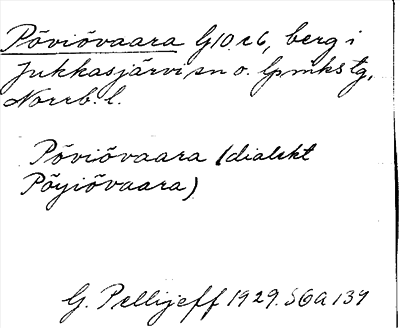 Põviõvaara G10 c6, berg i
Jukkasjärvi sn o. lpmkstg,
Norrb. l.
Põviõvaara (dialekt
Põyiõvaara)
G. Pellijeff 1929. SOA 139